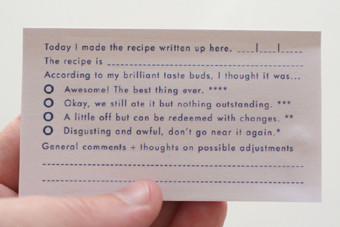 Today I made the recipe written up here. ___|___|___
The recipe is
According to my brilliant taste buds, I thought it was...
O Awesome! The best thing ever. ****
O Okay, we still ate it but nothing outstanding. ***
O A little off but can be redeemed with changes. **
O Disgusting and awful, don't go near it again.*
General comments + thoughts on possible adjustments